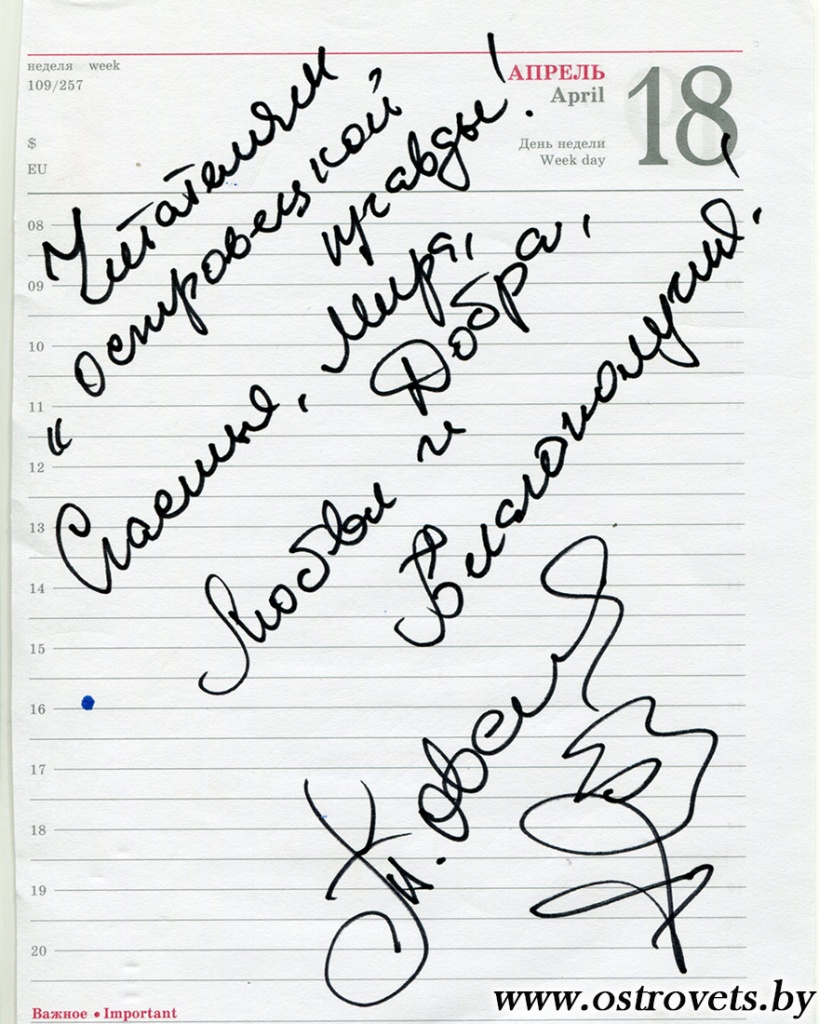 неделя week
109/257
АПРЕЛЬ
April
18
День недели
Week day
$
EU
08
09
10
11
12
13
14
15
16
17
18
19
20
Читателям
"островецкой
правды!
Счастья, Мира,
Добра,
Любви и
Благополучия!
Важное • Important
www.ostrovets.by